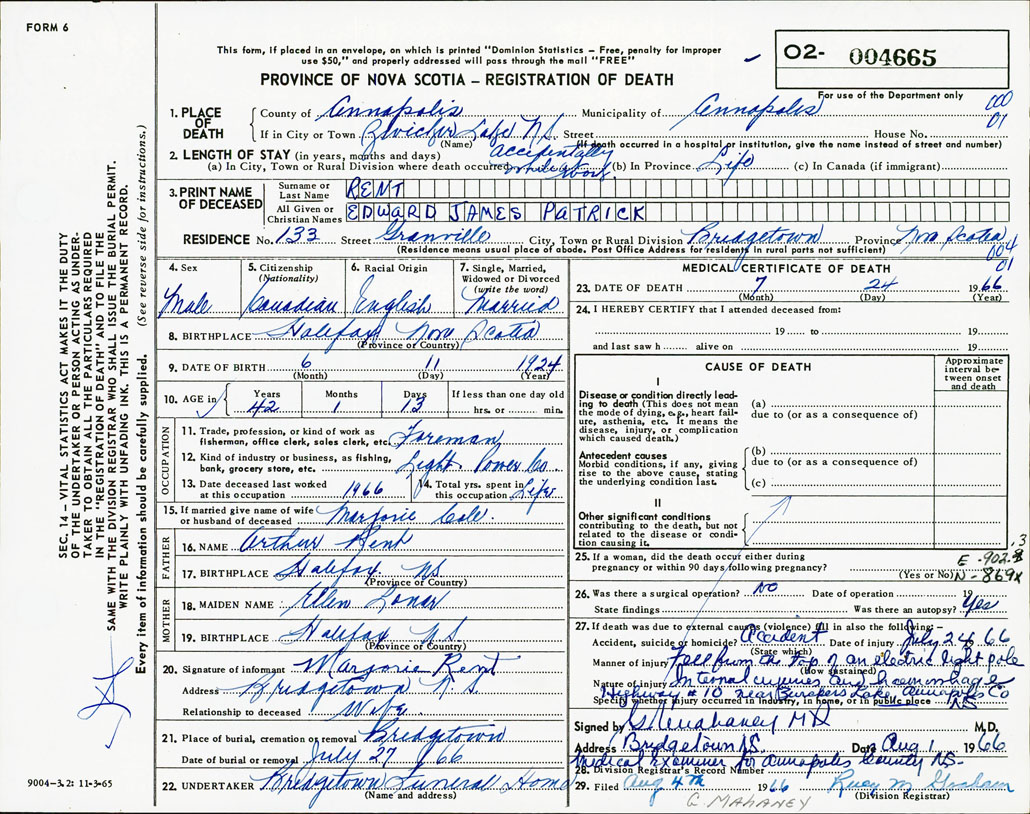 FORM 6
This form, if placed in an envelope, on which is printed "Dominion Statistics – Free, penalty for improper
use $50," and properly addressed will pass through the mail "FREE"
PROVINCE OF NOVA SCOTIA – REGISTRATION OF DEATH
O2- 004665
For use of the Department only
000
01
1. PLACE OF DEATH
County of Annapolis Municipality of Annapolis
If in City or Town Zwicker Lake N.S. Street House No.
(Name) (If death occurred in a hospital or institution, give the name instead of street and number)
2. LENGTH OF STAY (in years, months and days) accidentally
(a) In City, Town or Rural Division where death occurred while at work (b) In Province Life (c) In Canada (if immigrant)
3. PRINT NAME OF DECEASED
Surname or Last Name KENT
All Given or Christian Names EDWARD JAMES PATRICK
RESIDENCE No. 133 Street Granville City, Town or Rural Division Bridgetown Province Nova Scotia
(Residence means usual place of abode. Post Office Address for residents in rural parts not sufficient)
004
01
4. Sex Male
5. Citizenship (Nationality) Canadian
6. Racial Origin English
7. Single, Married, Widowed or Divorced (write the word) Married
8. BIRTHPLACE Halifax Nova Scotia
(Province or Country)
9. DATE OF BIRTH 6 11 1924
(Month) (Day) (Year)
10. AGE in Years 42 Months 1 Days 13 If less than one day old hrs. or min.
OCCUPATION
11. Trade, profession, or kind of work as fisherman, office clerk, sales clerk, etc. Foreman
12. Kind of industry or business, as fishing, bank, grocery store, etc. Light Power Co
13. Date deceased last worked at this occupation 1966
14. Total yrs. spent in this occupation Life
15. If married give name of wife or husband of deceased Marjorie Cole.
FATHER
16. NAME Arthur Kent
17. BIRTHPLACE Halifax NS
(Province or Country)
MOTHER
18. MAIDEN NAME Ellen
19. BIRTHPLACE Halifax NS
(Province or Country)
20. Signature of informant Marjorie Kent
Address Bridgetown N.S.
Relationship to deceased Wife
21. Place of burial, cremation or removal Bridgetown
Date of burial or removal July 27 /66
22. UNDERTAKER Bridgetown Funeral Home
(Name and address)
MEDICAL CERTIFICATE OF DEATH
23. DATE OF DEATH 7 24 1966
(Month) (Day) (Year)
24. I HEREBY CERTIFY that I attended deceased from:
19 to 19
and last saw h alive on 19
CAUSE OF DEATH
Approximate interval between onset and death
I
Disease or condition directly leading to death (This does not mean the mode of dying, e.g., heart failure, asthenia, etc. It means the disease, injury, or complication which caused death.)
(a)
due to (or as a consequence of)
Antecedent causes
Morbid conditions, if any, giving rise to the above cause, stating the underlying condition last.
(b)
due to (or as a consequence of)
(c)
II
Other significant conditions contributing to the death, but not related to the disease or condition causing it.
25. If a woman, did the death occur either during pregnancy or within 90 days following pregnancy?
(Yes or No)
E -902.3
N-869X
26. Was there a surgical operation? NO Date of operation 19
State findings Was there an autopsy? Yes
27. If death was due to external causes (violence) fill in also the following:–
Accident, suicide or homicide? Accident Date of injury July 24 66
(State which)
Manner of injury Fell from the top of an electric light pole
(How sustained)
Nature of injury Internal injuries and haemorrhage
Highway #10 near Annapolis Co
Specify whether injury occurred in industry, in home, or in public place NS
Signed by Mahaney MD M.D.
Address Bridgetown NS. Date Aug 1 1966
Medical Examiner for Annapolis County NS-
28. Division Registrar's Record Number
29. Filed Aug 4th 1966
(Division Registrar)
G. MAHANEY
SEC. 14 – VITAL STATISTICS ACT MAKES IT THE DUTY
OF THE UNDERTAKER OR PERSON ACTING AS UNDER-
TAKER TO OBTAIN ALL THE PARTICULARS REQUIRED
IN THE "REGISTRATION OF DEATH" AND TO FILE THE
SAME WITH THE DIVISION REGISTRAR WHO SHALL ISSUE THE BURIAL PERMIT.
WRITE PLAINLY WITH UNFADING INK. THIS IS A PERMANENT RECORD.
Every item of information should be carefully supplied. (See reverse side for instructions.)
9004-3.2: 11-3-65